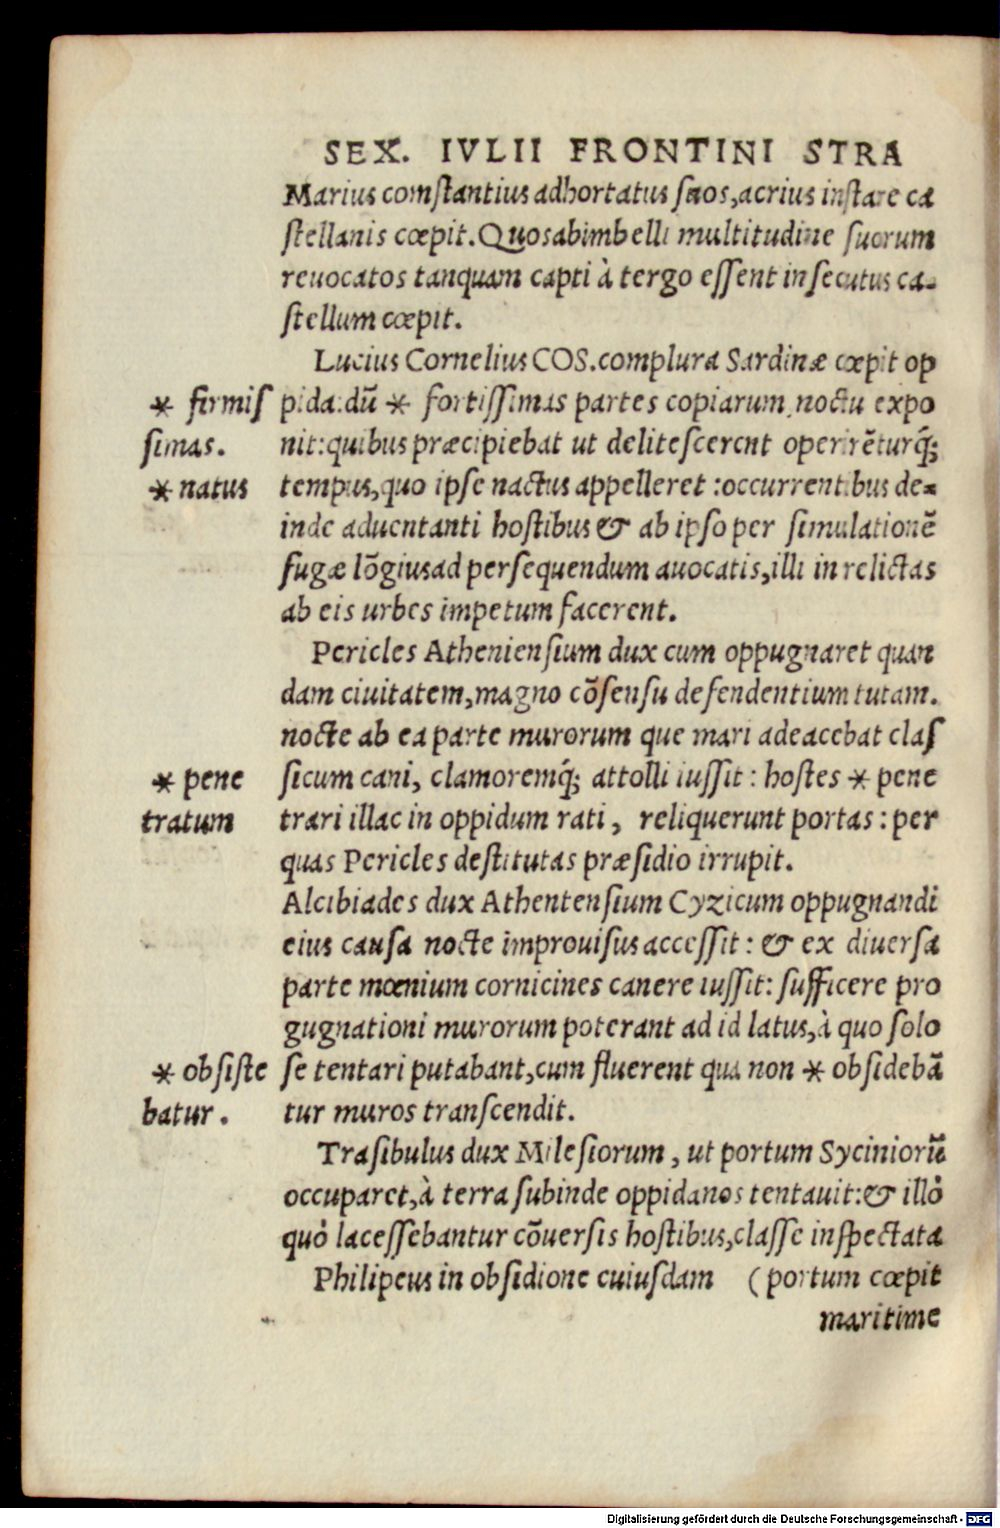 SEX. IVLII FRONTINI STRA
Marius comſtantius adhortatus ſuos,acrius inſtare ca
ſtellanis cœpit. Quos ab imbelli multitudine ſuorum
reuocatos tanquam capti à tergo eſſent inſecutus ca-
ſtellum cœpit.
Lucius Cornelius COS.complura Sardinæ cœpit op
* firmiſ pida:dū * fortiſſimas partes copiarum noctu expo
ſimas. nit:quibus præcipiebat ut deliteſcerent operirēturq́;
* natus tempus,quo ipſe nactus appelleret :occurrentibus de-
inde aduentanti hoſtibus & ab ipſo per ſimulationē
fugæ lōgius ad perſequendum auocatis,illi in relictas
ab eis urbes impetum facerent.
Pericles Athenienſium dux cum oppugnaret quan
dam ciuitatem,magno cōſenſu defendentium tutam.
nocte ab ea parte murorum que mari adeacebat claſ
* pene ſicum cani, clamoremq́; attolli iuſſit : hoſtes * pene
tratum trari illac in oppidum rati , reliquerunt portas : per
quas Pericles deſtitutas præſidio irrupit.
Alcibiades dux Athentenſium Cyzicum oppugnandi
eius cauſa nocte improuiſus acceſſit : & ex diuerſa
parte mœnium cornicines canere iuſſit: ſufficere pro
gugnationi murorum poterant ad id latus,à quo ſolo
* obſiſte ſe tentari putabant,cum fluerent qua non * obſidebā
batur. tur muros tranſcendit.
Traſibulus dux Mileſiorum , ut portum Syciniorū
occuparet,à terra ſubinde oppidanos tentauit:& illò
quò laceſſebantur cōuerſis hoſtibus,claſſe inſpectata
Philipeus in obſidione cuiuſdam (portum cœpit
maritime
Digitalisierung gefördert durch die Deutsche Forschungsgemeinschaft - DFG